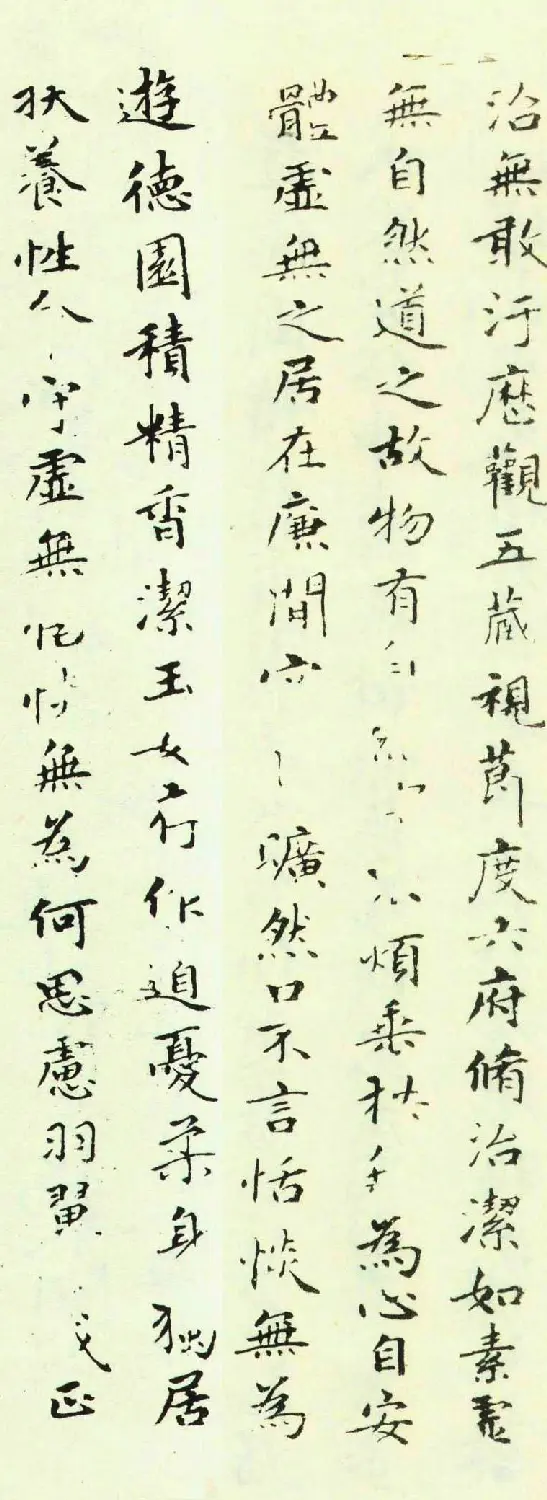 治無敢汙歷觀五藏視莭度六府脩治潔如素虛
無自然道之故物有自煩垂為心自安
體虛無之居在廉間曠然口不言恬惔無為
遊德園積精香潔玉女作道憂柔身獨居
扶養性守虛無無為何思慮羽翼正